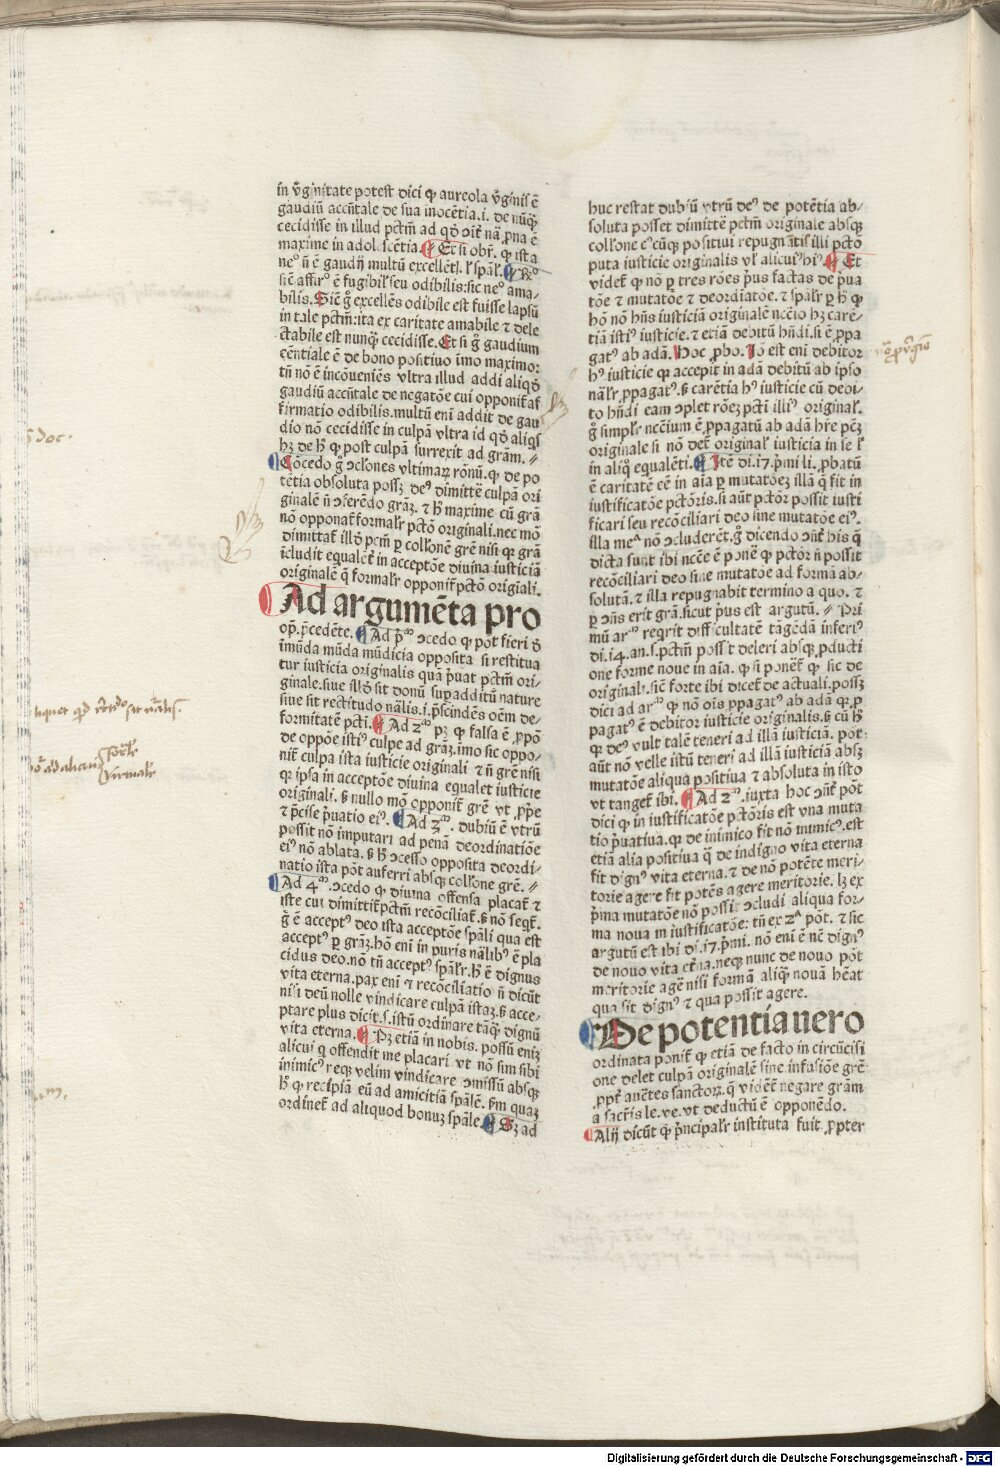 in v̄ginitate potest dici ꝙ aureola v̄ginis ē
gaudiū accn̄tale de sua inocētia.i. de nūqꝫ
cecidisse in illud pctm̄ ad qd̄ oīs nā prona ē
maxime in adolescētia. Et si obr̄. ꝙ ista
neº n̄ ē gaudij multū excellētis. ł spāł. Rº
sic̄ affirº ē fugibił seu odibilis: sic neº ama⸗
bilis. Sic̄ g̊ excellēs odibile est fuisse lapsū
in tale pctm̄: ita ex caritate amabile ⁊ dele
ctabile est nunqꝫ cecidisse. Et si g̊ gaudium
cēntiale ē de bono positiuo īmo maximo:
tn̄ nō ē incōueniēs vltra illud addi aliqd̄
gaudiū accn̄tale de negatōe cui opponit᷑ af
firmatio odibilis. multū enī addit de gau
dio nō cecidisse in culpā vltra id qd̄ aliqs
hꝫ de hͦ ꝙ post culpā surrexit ad grām. ⸗
Cōcedo g̊ ɔclones vltimaꝝ rōnū. ꝙ de po
tētia absoluta possꝫ deꝰ dimitte culpā ori
ginalē n̄ ɔferēdo grāꝫ. ⁊ hͦ maxime cū grā
nō opponat᷑ formałr pctō originali. nec mō
dimittat᷑ illd̄ pcm̄ ꝑ collōne gr̄e nisi qꝛ grā
īcludit equalet᷑ in acceptōe diuina iusticiā
originalē q̄ formałr opponit᷑ pctō origīali.
Ad argumēta pro
op̄. p̄cedēte. Ad pᵐ ɔcedo ꝙ pot fieri d̄
īmūda mūda mūdicia opposita si restitua
tur iusticia originalis quā p̄uat pctm̄ ori⸗
ginale. siue illd̄ sit donū supadditū nature
siue sit rectitudo nālis. i. p̄scindēs oēm de⸗
formitatē pcti. Ad 2ᵐ pꝫ ꝙ falsa ē ꝓpō
de oppōe istiꝰ culpe ad grāꝫ. imo sic oppo⸗
nit᷑ culpa ista iusticie originali ⁊ n̄ gr̄e nisi
qꝛ ipsa in acceptōe diuina equalet iusticie
originali. sꝫ nullo mō opponit᷑ gr̄e vt ꝓpe
⁊ p̄cise p̄uatio eiꝰ. Ad 3ᵐ. dubiū ē vtrū
possit nō imputari ad penā deordinatiōe
eiꝰ nō ablata. sꝫ hͦ ɔcesso opposita deordi⸗
natio ista pōt auferri absqꝫ collōne gr̄e. ⸗
Ad 4ᵐ. ɔcedo ꝙ diuina offensa placat᷑ ⁊
iste cui dimittit᷑ pctm̄ recōciliat᷑. sꝫ nō seqt᷑.
g̊ ē acceptꝰ deo ista acceptōe spāli qua est
acceptꝰ ꝑ grāꝫ. hō enī in puris nālibꝰ ē pla
cidus deo. nō tn̄ acceptꝰ spāłr. hͦ ē dignus
vita eterna. pax enī ⁊ recōciliatio n̄ dicūt
nisi deū nolle vindicare culpā istaꝫ. sꝫ acce⸗
ptare plus dicit. s. istū ordinare tāqꝫ dignū
vita eterna. Pꝫ etiā in nobis. possū eniꝫ
alicui q offendit me placari vt nō sim sibi
inimicꝰ reqꝫ velim vindicare ɔmissū absqꝫ
hͦ ꝙ recipiā eū ad amicitiā spālē. sꝫm quaꝫ
ordinet᷑ ad aliquod bonuꝫ spāle. Sꝫ ad
huc restat dubiū vtrū deꝰ de potētia ab⸗
soluta posset dimittē pctm̄ originale absqꝫ
collōne cꝰcūqꝫ positiui repugnātis illi pctō
puta iusticie originalis vł alicuiꝰ hiꝰ. Et
videt᷑ ꝙ nō ꝑ tres rōes p̄us factas de p̄ua
tōe ⁊ mutatōe ⁊ deordiatōe. ⁊ spāłr ꝑ hͦ ꝙ
hō nō hn̄s iusticiā originalē ncc̄io hꝫ carē⸗
tiā istiꝰ iusticie. ⁊ etiā debitū hn̄di. si ē ꝓpa
gatꝰ ab adā. Hoc ꝓbo. Iō est enī debitor
hꝰ iusticie qꝛ accepit in adā debitū ab ipso
nāłr ꝓpagatꝰ. sꝫ carētia hꝰ iusticie cū debi⸗
to hn̄di eam ɔplet rōeꝫ pcti illiꝰ originał.
g̊ simplr ncc̄ium ē ꝓpagatū ab adā hr̄e pcꝫ
originale si nō det᷑ originał iusticia in se ł
in aliq̊ equalēti. Itē di.17. p̄mi li. ꝓbatū
ē caritatē eē in aīa ꝑ mutatōeꝫ illā q̄ fit in
iustificatōe pctōris. si aūt pctōr possit iusti
ficari seu recōciliari deo sine mutatōe eiꝰ.
illa meᵃ nō ɔcluderet. g̊ dicendo ɔn̄t᷑ his q̄
dicta sunt ibi nc̄ce ē ponē ꝙ pctōr n̄ possit
recōciliari deo sine mutatōe ad formā ab⸗
solutā. ⁊ illa repugnabit termino a quo. ⁊
ꝑ ɔn̄s erit grā. sicut p̄us est argutū. ⸗ Pri
mū arᵐ reqrit difficultatē tāgēdā inferiꝰ
di.14. an. s. pctm̄ possit deleri absqꝫ ꝓducti
one forme noue in aīa. ꝙ si ponet᷑ ꝙ sic de
originali. sic̄ forte ibi dicet᷑ de actuali. possꝫ
dici ad arᵐ ꝙ nō oīs ꝓpagatꝰ ab adā qꝛ ꝓ
pagatꝰ ē debitor iusticie originalis. sꝫ cū hͦ
ꝙ deꝰ vult talē teneri ad illā iusticiā. pot
aūt nō velle istū teneri ad illā iusticiā absqꝫ
mutatōe aliqua positiua ⁊ absoluta in isto
vt tanget᷑ ibi. Ad 2ᵐ. iuxta hoc ɔn̄t᷑ pōt
dici ꝙ in iustificatōe pctōris est vna muta
tio p̄uatiua. qꝛ de inimico fit nō inimicꝰ. est
etiā alia positiua q̄ de indigno vita eterna
fit dignꝰ vita eterna. ⁊ de nō potēte meri⸗
torie agere fit potēs agere meritorie. lꝫ ex
p̄ma mutatōe nō possit ɔcludi aliqua for⸗
ma noua in iustificatōe: tn̄ ex 2ᵃ pōt. ⁊ sic
argutū est ibi di.17. p̄mi. nō enī ē nc̄ dignꝰ
de nouo vita et̄na. necqꝫ nunc de nouo pōt
meritorie age nisi formā aliqꝫ nouā hēat
qua sit dignꝰ ⁊ qua possit agere.
De potentia uero
ordinata ponit᷑ ꝙ etiā de facto in circūcisi
one delet culpā originalē sine infusiōe gr̄e
ꝓpt᷑ auētes sanctoꝝ. q̄ vident᷑ negare grām
a sacris le. ve. vt deductū ē opponēdo.
Alij dicūt ꝙ p̄ncipałr instituta fuit ꝓpter
Digitalisierung gefördert durch die Deutsche Forschungsgemeinschaft - DFG